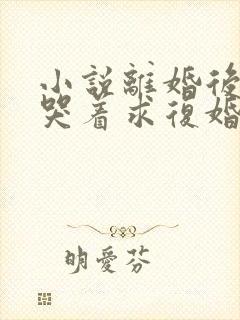 小說離婚後
哭着求復婚
明愛芬